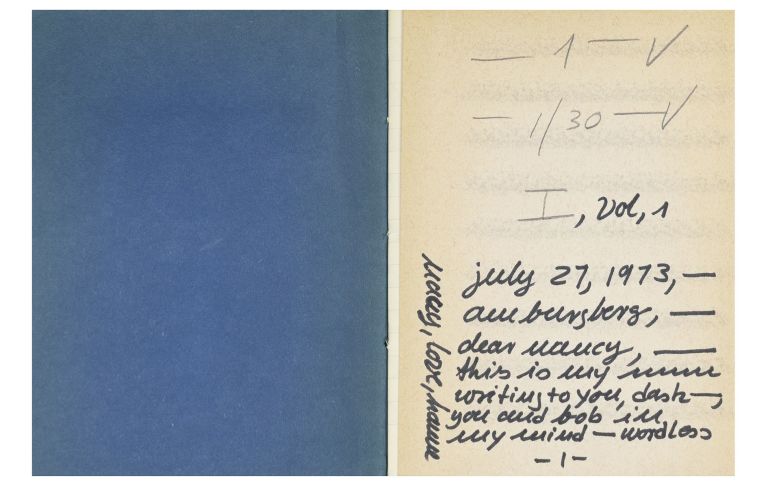 — 1 — ✓
— 1/30 — ✓
I, vol, 1
july 27, 1973, —
am burgberg, —
dear nancy, —
this is my mmm
writing to you, dash —,
you and bob in
my mind — wordless
— 1 —
nancy, love, hanne